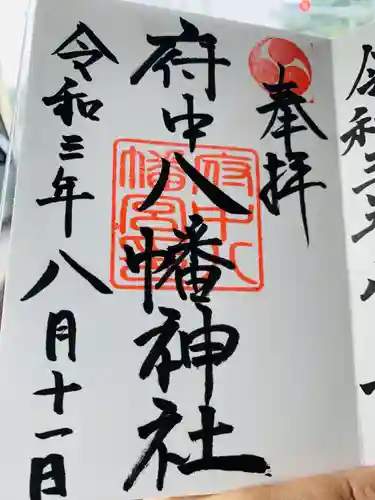 奉拝
府中八幡神社
令和三年八月十一日
府中八幡宮
令和三年